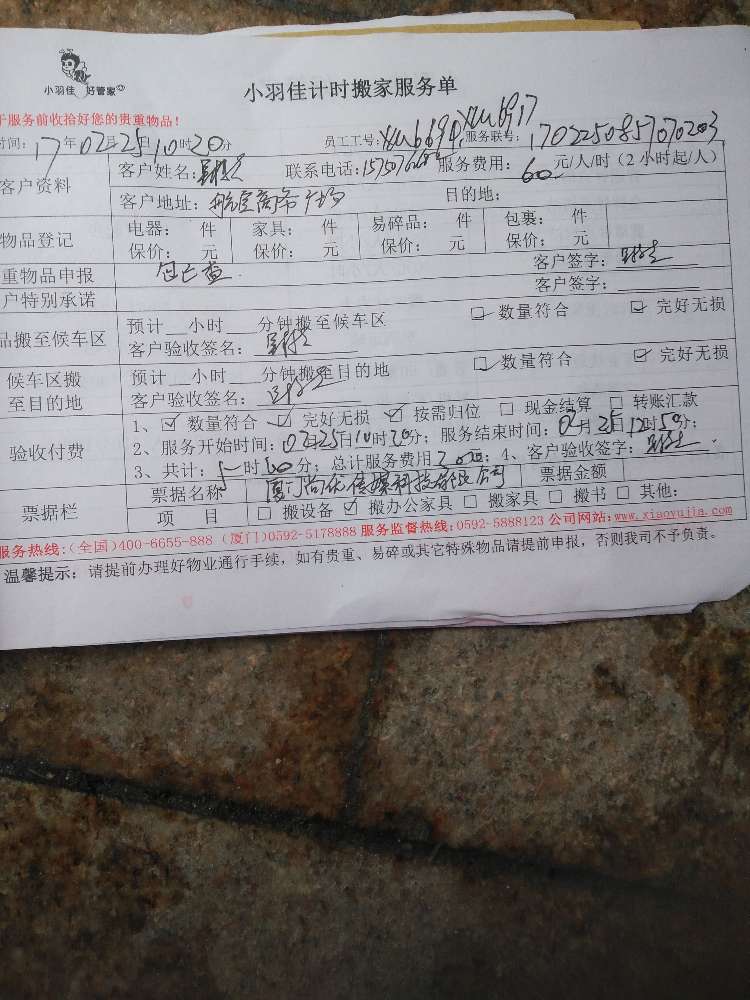 小羽佳 好管家
小羽佳计时搬家服务单
于服务前收拾好您的贵重物品!
时间: 17年02月25日10时20分 员工工号: 服务联号: 170225085707070203
客户资料 客户姓名: 联系电话: 服务费用: 60 元/人/时(2小时起/人)
客户地址: 航空商务广场 目的地:
物品登记 电器: 件 家具: 件 易碎品: 件 包裹: 件
保价: 元 保价: 元 保价: 元 保价: 元
重物品申报 客户签字:
户特别承诺 客户签字:
品搬至候车区 预计__小时__分钟搬至候车区 ☑ 数量符合 ☑ 完好无损
客户验收签名:
候车区搬至目的地 预计__小时__分钟搬至目的地 ☑ 数量符合 ☑ 完好无损
客户验收签名:
验收付费 1、☑ 数量符合 ☑ 完好无损 ☑ 按需归位 □ 现金结算 □ 转账汇款
2、服务开始时间: 02月25日10时20分; 服务结束时间: 02月25日12时50分;
3、共计: 时 分; 总计服务费用 元; 4、客户验收签字:
票据栏 票据名称 厦门尚优传媒科技有限公司 票据金额
项 目 □ 搬设备 ☑ 搬办公家具 □ 搬家具 □ 搬书 □ 其他:
服务热线:(全国)400-6655-888 (厦门)0592-5178888 服务监督热线:0592-5888123 公司网站:www.xiaoyujia.com
温馨提示: 请提前办理好物业通行手续, 如有贵重、易碎或其它特殊物品请提前申报, 否则我司不予负责。